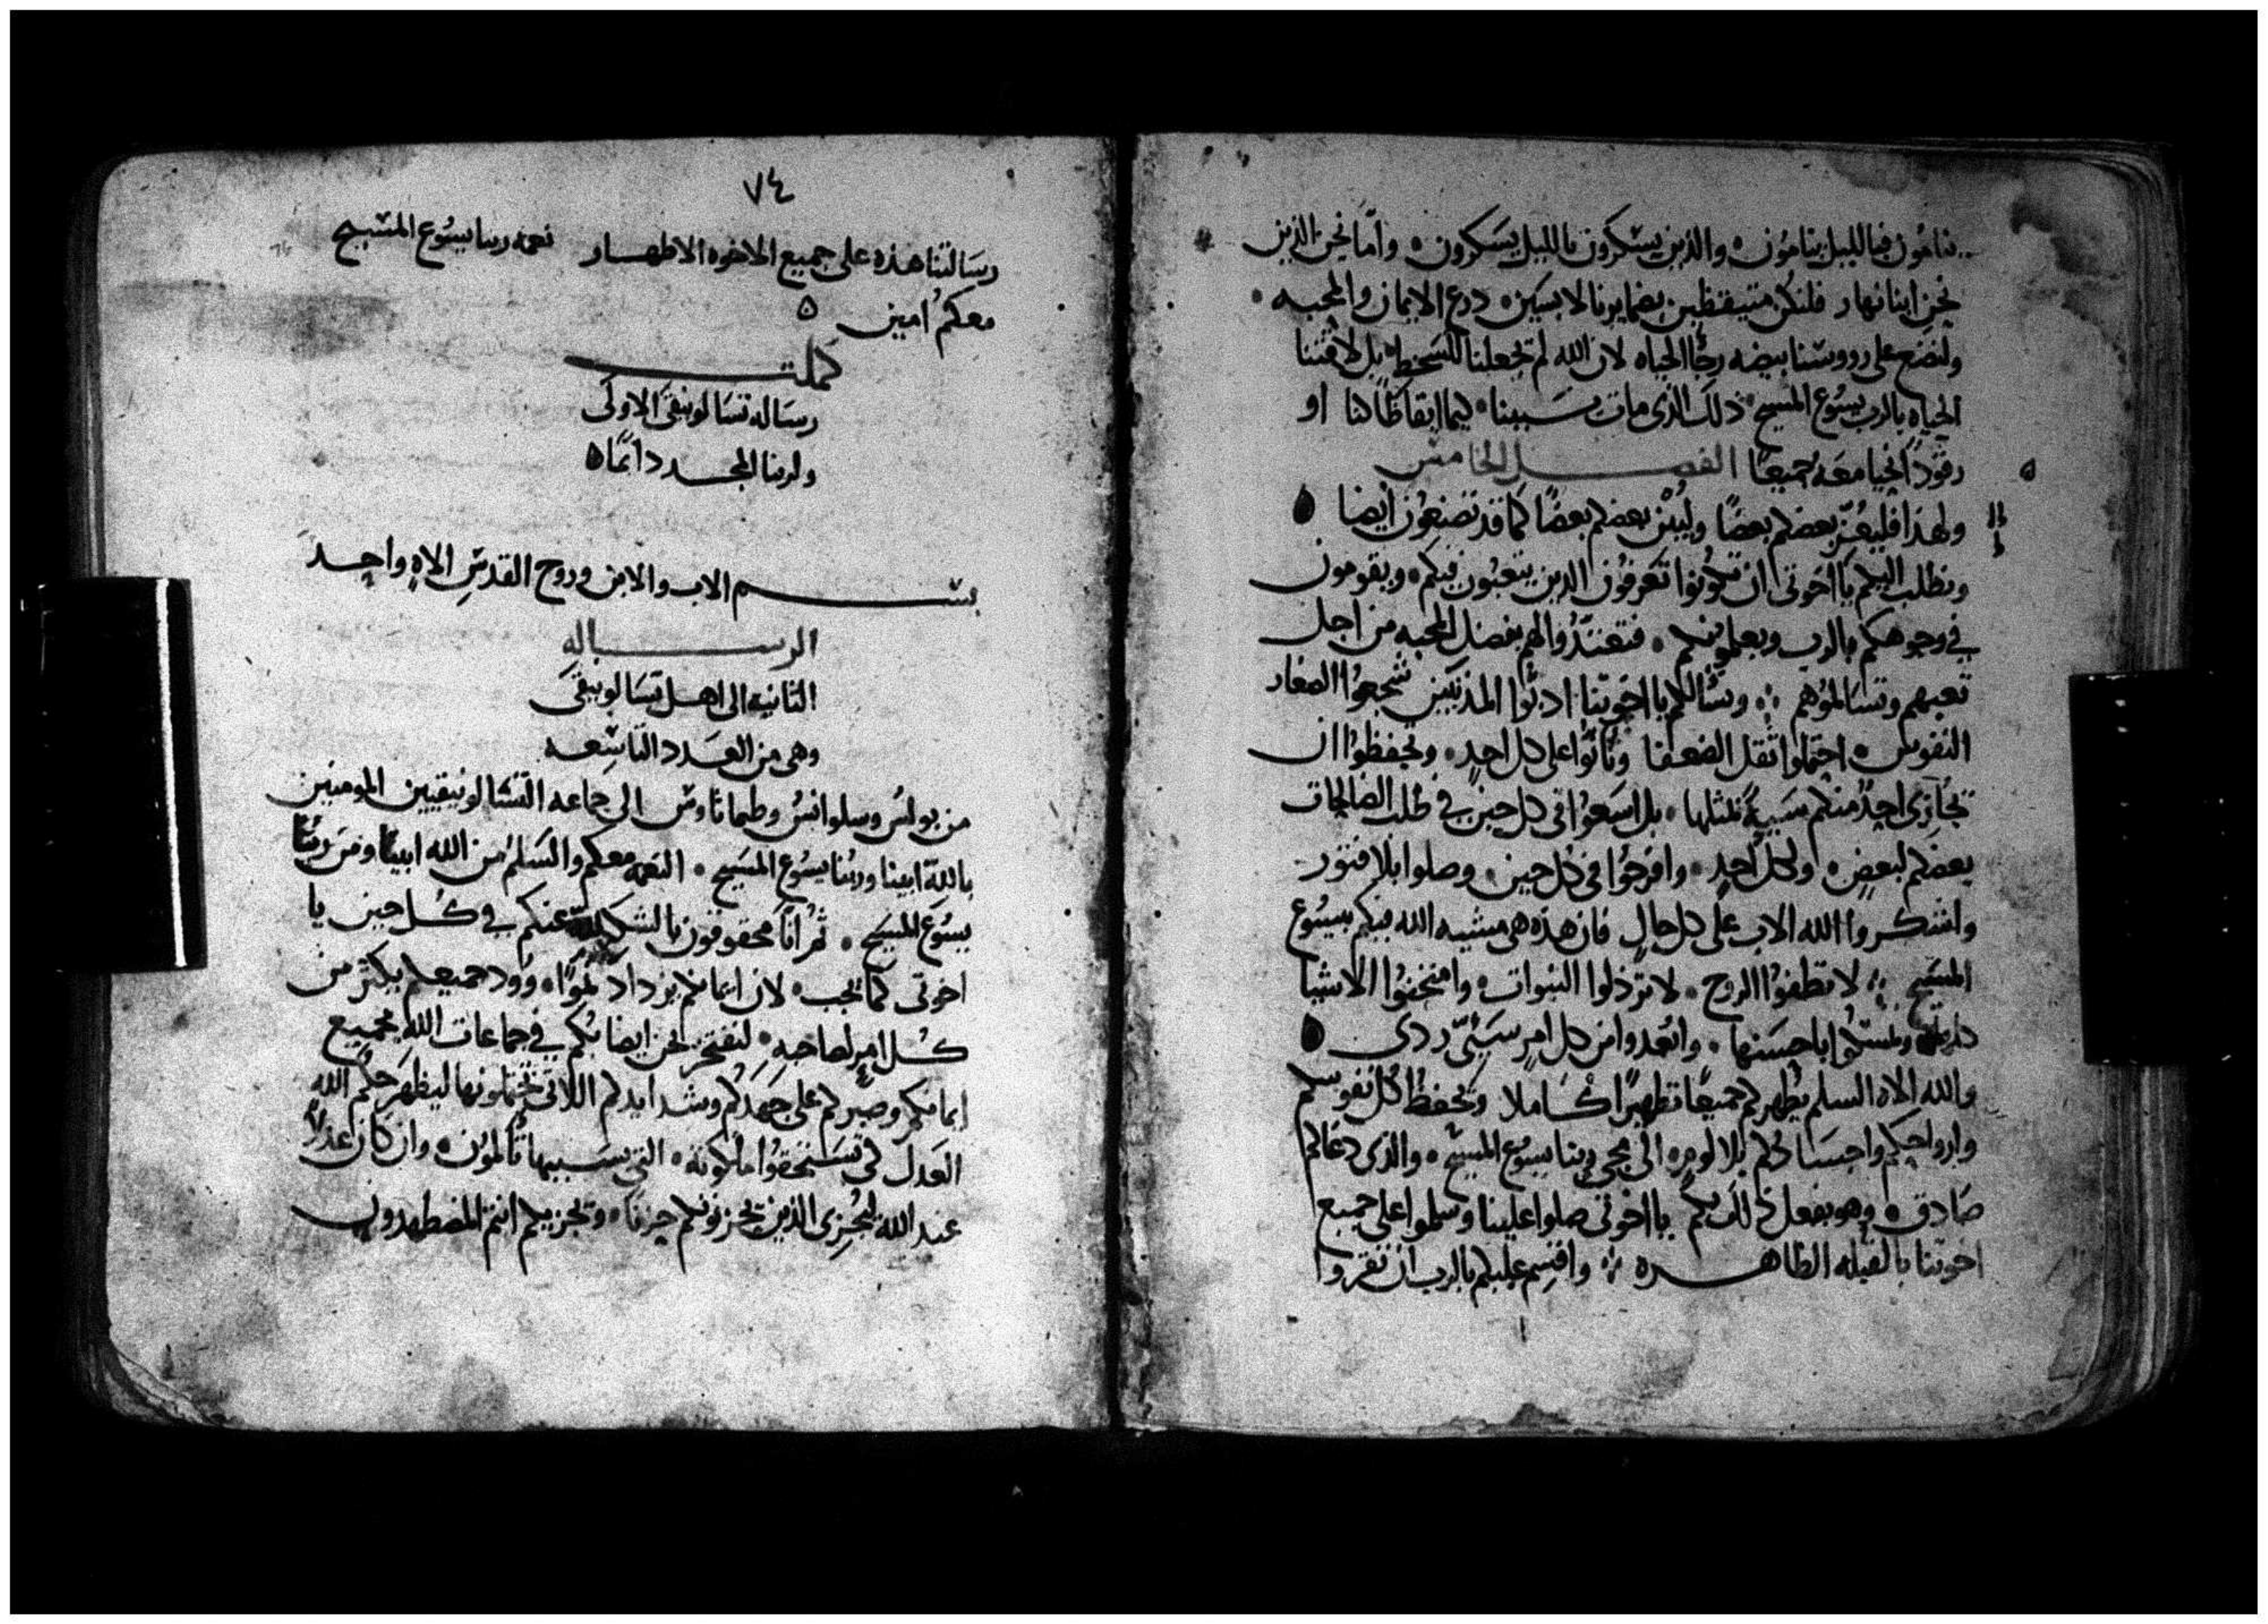 ينامون فبالليل ينامون والذين يسكرون بالليل يسكرون واما نحن الذين
نحن ابنا نهار فلنكن متيقظين بضمايرنا لابسين درع الايمان والمحبه
ولنضع على رووسنا بيضه رجا الحياه لان الله لم يجعلنا للسخط بل لاقتنا
الحياه بالرب يسوع المسيح ذلك الذى مات بسببنا كيما ايقاظا كنا او
رقودا نحيا معه جميعا الفصل الخامس
ولهذا فليعز بعضكم بعضا وليبن بعضكم بعضا كما قد تصنعون ايضا
ونطلب اليكم يا اخوتى ان تكونوا تعرفون الذين يتعبون فيكم ويقومون
فى وجوهكم بالرب ويعلمونكم فتعتدوا لهم بفضل المحبه من اجل
تعبهم وتسالموهم ونسالكم يا اخوتنا ادبوا المذنبين شجعوا الصغار
النفوس احتملوا ثقل الضعفا وتانوا على كل احد وتحفظوا ان
يجازى احد منكم سيية بمثلها بل اسعوا فى كل حين فى طلب الصالحات
بعضكم لبعض ولكل احد وافرحوا فى كل حين وصلوا بلا فتور
واشكروا الله الاب على كل حال فان هذه هى مشيه الله فيكم بيسوع
المسيح لا تطفوا الروح لا ترذلوا النبوات وامتحنوا الاشيا
كلها وتمسكوا باحسنها وابعدوا من كل امر سيئ ردى
والله الاه السلم يطهركم جميعا تطهيرا كاملا ويحفظ كل نفوسكم
وارواحكم واجسادكم بلا لوم الى مجى ربنا يسوع المسيح والذى دعاكم
صادق وهو يفعل ذلك بكم يا اخوتى صلوا علينا وسلموا على جميع
اخوتنا بالقبله الطاهره واقسم عليكم بالرب ان تقروا
٧٤
رسالتنا هذه على جميع الاخوه الاطهار نعمه ربنا يسوع المسيح
معكم امين
كملت
رساله تسالونيقى الاولى
ولربنا المجد دائما
بسم الاب والابن وروح القدس الاه واحد
الرساله
الثانيه الى اهل تسالونيقى
وهى من العدد التاسعه
من بولس وسلوانس وطيماتاوس الى جماعه التسالونيقيين المومنين
بالله ابينا وربنا يسوع المسيح النعمه معكم والسلم من الله ابينا ومن ربنا
يسوع المسيح ثم انا محقوقون بالشكر لله عنكم فى كل حين يا
اخوتى كما يجب لان ايمانكم يزداد نموا وود جميعكم يكثر من
كل امر لصاحبه لنفتخر نحن ايضا بكم فى جماعات الله بجميع
ايمانكم وصبركم على جهدكم وشدايدكم اللاتى تحتملونها ليظهر حكم الله
العدل لكى تستحقوا ملكوته التى بسببها تالمون وان كان عدلا
عند الله ليجزى الذين يحزنونكم حزنا ويجزيكم انتم المضطهدون